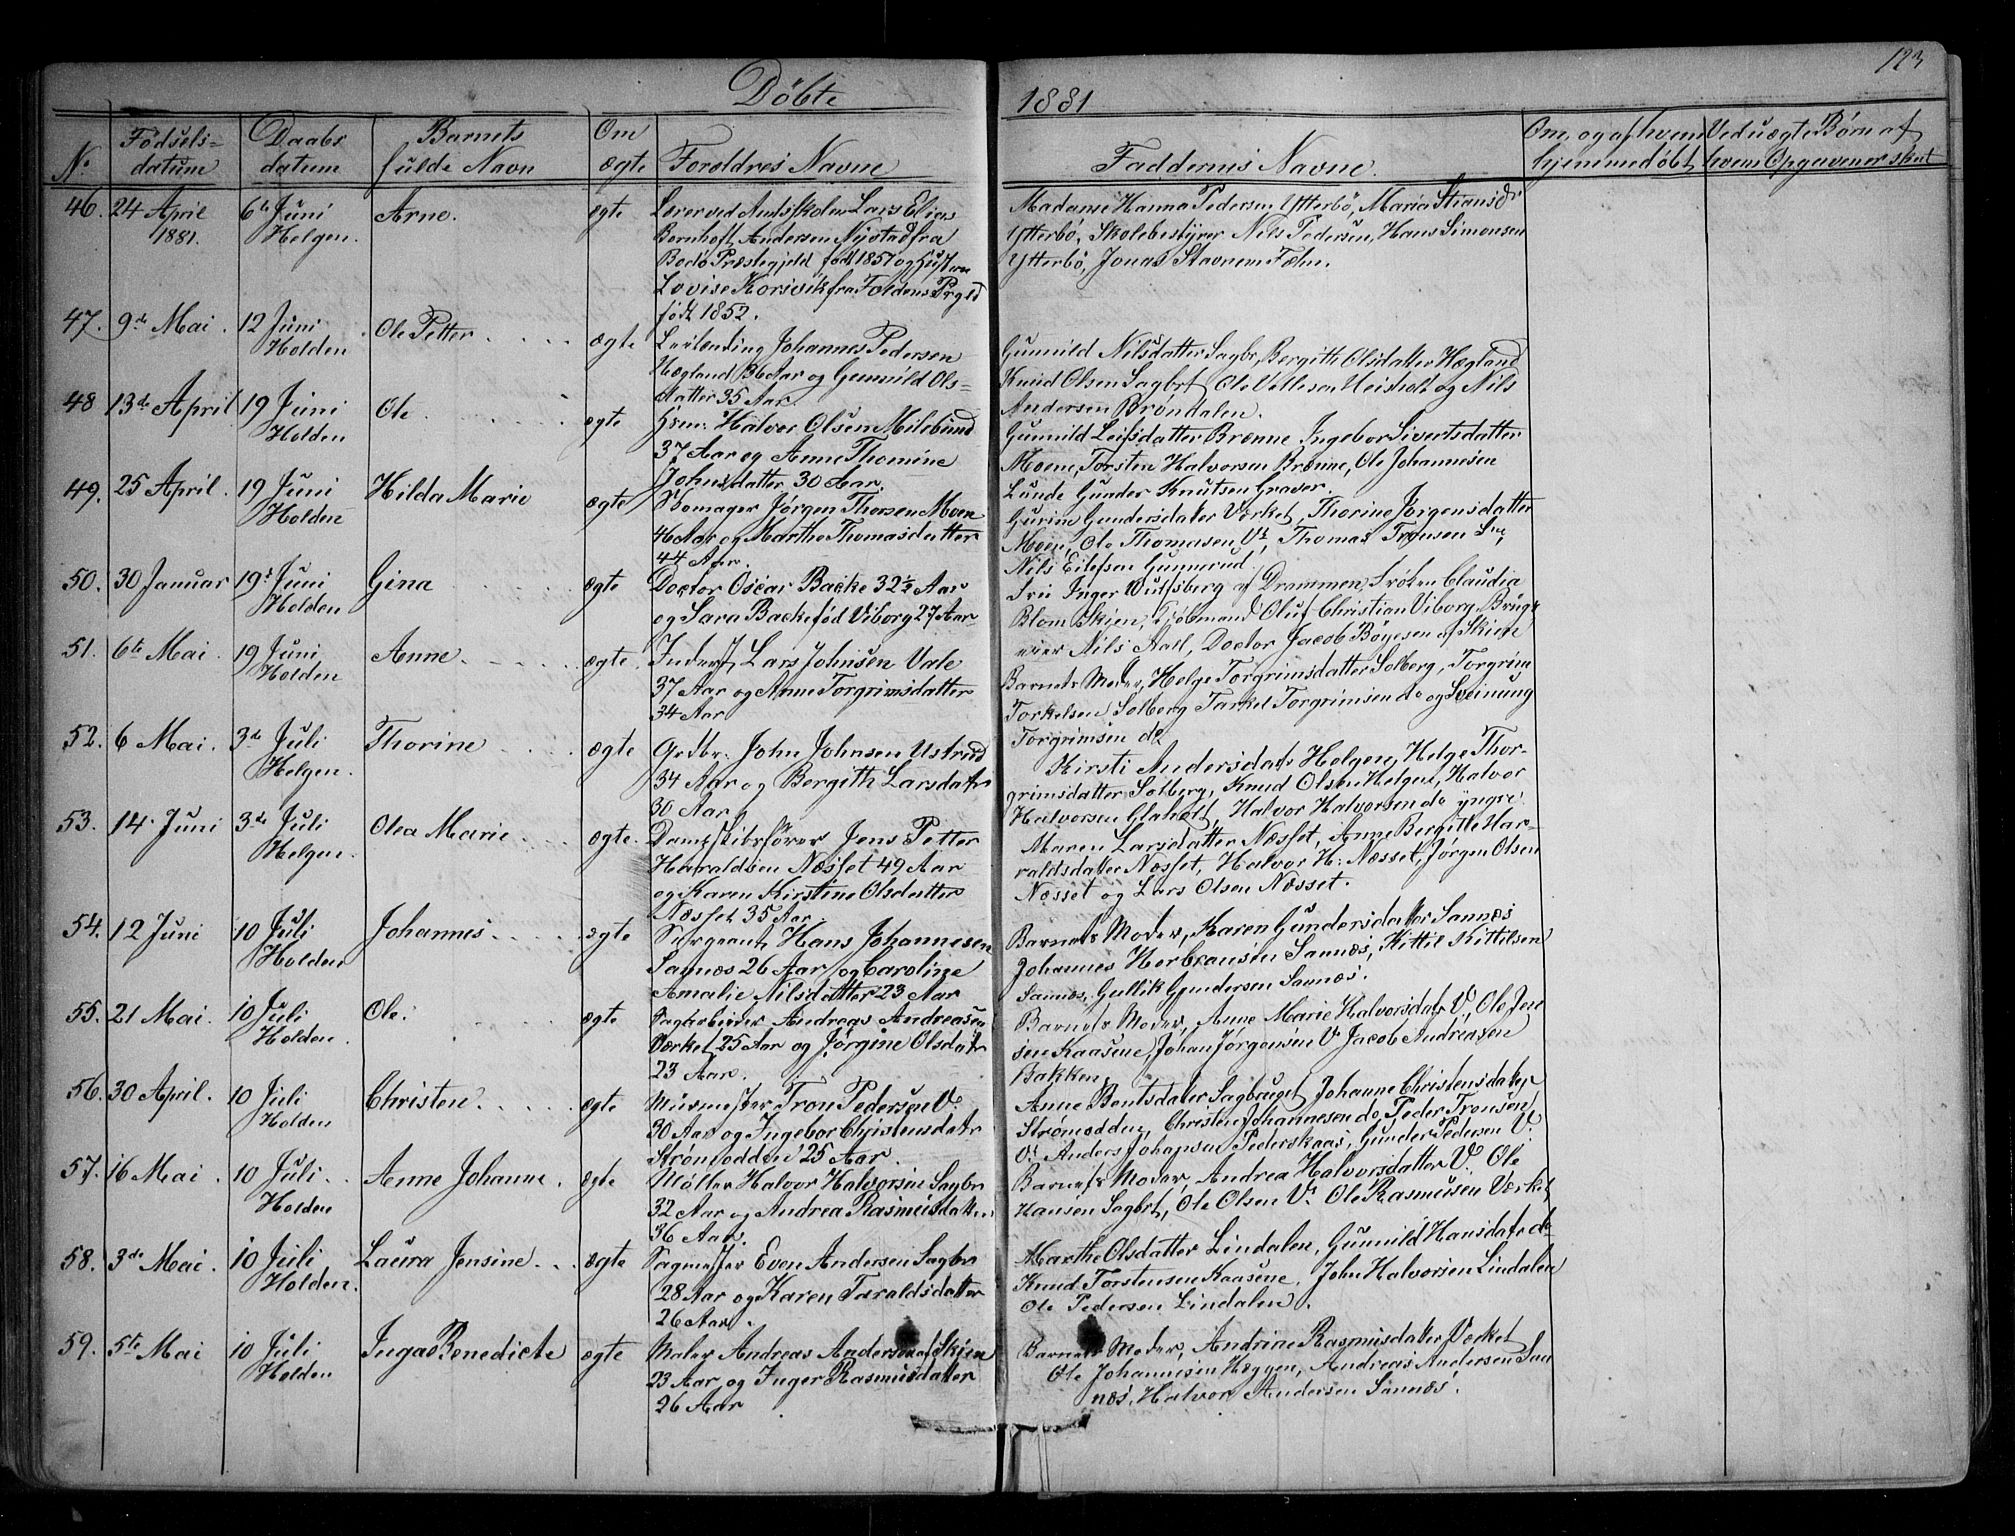 123
Døbte
1881
No
Fødsels-
datum
Daabs
datum
Barnets
fulde Navn
Om
ægte
Foreldres Navne
Faddernes Navne.
Om, og af hvem
hjemmedøbt
Ved uægte Børn af
hvem Opgaven er skeet
46. 24 April
1881.
6te Juni
Helgen.
Arne.
ægte
Lærer ved Amtsskolen Lars Elias
Bornhoft Andersen Nystad fra
Bodø Præstegjeld, født 1857 og Hustru
Lovise Korsvik fra Foldens Prgld
født 1852.
Madame Hanna Pedersen Ytterbö, Maria Stiansd.
Ytterbö, Skolebestyrer Nils Pedersen, Hans Simonsen
Ytterbö, Jonas Stavnem Fæhn.
47. 9de Mai.
12 Juni
Holden
Ole Petter
ægte
Leilending Johannes Pedersen
Hægland 36 Aar og Gunnild Ols-
datter 35 Aar.
Gunnild Nilsdatter Sagbr, Bergith Olsdatter Hægland
Knud Olsen Sagbrt, Ole Vetlesen Meisholt og Nils
Andersen Brøndalen.
48 13de April
19 Juni
Holden
Ole
ægte
Hsm: Halvor Olsen Milebund
37 Aar og Anne Thomine
Johnsdatter 30 Aar.
Gunnild Leifsdatter Brenne Ingebor Sivertsdatter
Moene, Torsten Halvorsen Brenne, Ole Johannesen
Lunde Gunder Knutsen Graver.
49. 25 April.
19 Juni
Holden
Hilda Marie
ægte
Skomager Jørgen Thorsen Moen
46 Aar og Marthe Thomasdatter
44 Aar.
Gurine Gundersdater Værket, Thorine Jørgensdatter
Moen, Ole Thomasen Vt, Thomas Tronsen
Nils Eilefsen Gunnerud.
50. 30 Januar
19de Juni
Holden
Gina
ægte
Doctor Oscar Backe 32½ Aar
og Sara Backe fød Viborg 27 Aar
Fru Inger Wulfsberg af Drammen, Frøken Claudia
Blom Skien, Kjøbmand Oluf Christian Viborg, Brugs
eier Nils Aall, Doctor Jacob Böyesen af Skien
51. 6te Mai
19 Juni
Holden
Anne
ægte
Inderst, Lars Johnsen Vale
37 Aar og Anne Torgrimsdatter
34 Aar
Barnets Moder, Helge Torgrimsdatter Solberg, Torgrim
Torkelsen Solberg Tarkel Torgrimsen do og Sveinung
Torgrimsen do
52. 6 Mai.
3de Juli
Helgen.
Thorine
ægte
Grdbr. John Johnsen Ustrud
34 Aar og Bergith Larsdatr
30 Aar
Kirsti Andersdatr Helgen, Helge Thor-
grimsdatter Solberg, Knud Olsen Helgen, Halvor
Halvorsen Glaholt, Halvor Halvorsen do yngre
53. 14. Juni
3de Juli
Helgen.
Olea Marie
ægte.
Dampskibsfører Jens Petter
Haraldsen Næsset 49 Aar
og Karen Kirstine Olsdatter
Næsset 35 Aar.
Maren Larsdatter Næsset, Anne Bergitte Har-
raldsdatter Næsset, Halvor H. Næsset, Jørgen Olsen
Næsset og Lars Olsen Næsset.
54. 12 Juni
10 Juli
Holden
Johannes
ægte
Sergeant Hans Johannesen
Sannæs 26 Aar og Caroline
Amalie Nilsdatter 23 Aar
Barnets Moder, Karen Gundersdatter Sannæs
Johannes Herbransen Sannæs, Kittil Kittilsen
Sannæs, Gullik Gundersen Sannæs.
55. 21 Mai.
10 Juli
Holden
Ole.
ægte
Sagarbeider Andreas Andreasen
Værket 25 Aar og Jørgine Olsdatr
23 Aar.
Barnets Moder, Anne Marie Halvorsdatr V., Ole Jen
sen Kaasene, Johan Jørgensen V. Jacob Andreasen
Bakken
56. 30 April.
10 Juli
Holden
Christen
ægte
Murmester Tron Pedersen V.
30 Aar og Ingebor Christensdatr
Strømodden 25 Aar.
Anne Bentsdater Sagbruget Johanne Christensdater
Strømodden, Christen Johannesen do Peder Tronsen
V. Anders Johansen Pederskaas, Gunder Pedersen V.
57. 16 Mai
10 Juli.
Holden
Anne Johanne.
ægte
Møller Halvor Halvorsen Sagbr
32 Aar og Andrea Rasmusdatter
36 Aar.
Barnets Moder, Andrea Halvorsdatter V. Ole
Hansen Sagbrt, Ole Olsen V. Ole Rasmusen Værket
58. 3de Mai.
10 Juli
Holden.
Laura Jensine
ægte
Sagmester Even Andersen Sagbr
28 Aar og Karen Taraldsdatter
26 Aar.
Marthe Olsdatter Lindalen, Gunnild Hansdatr do
Knud Torstensen Kaasene, John Halvorsen Lindalen
Ole Pedersen Lindalen.
59. 5te Mai
10 Juli
Holden
Inga Benedicte
ægte
Maler Andreas Andersen af Skien
23 Aar og Inger Rasmusdatter
26 Aar
Barnets Moder, Andrine Rasmusdatter Værket
Ole Johannesen Hæggen, Andreas Andersen San
næs, Halvor Andersen Sannæs.